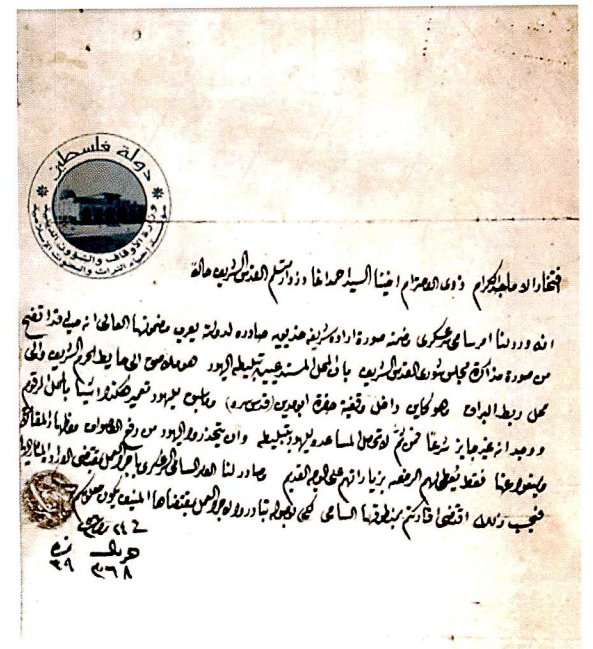 دولة فلسطين
وزارة الأوقاف والشؤون الدينية
مؤسسة إحياء التراث والبحوث الإسلامية
افتخار الاماجد الكرام ذوي الاحترام اخينا السيد احمد اغا دزدار متسلم القدس الشريف حالا
انه ورد لنا امر سامي سر عسكري مضمنه صورة ارادة شريفة خديويه صادره لدولته يعرب مضمونها العالي انه حيث قد اتضح
من صورة مذاكرة مجلس شورى القدس الشريف بان المحل المستدعيين تبليطه اليهود هو ملاصق الى حايط الحرم الشريف والى
محل ربط البراق وهو كاين داخل وقفية حضرة ابو مدين (قدس سره) وما سبق لليهود تعمير هكذا اشيا بالمحل المرقوم
ووجد انه غير جايز شرعا فمن ثم لا تحصل المساعده لليهود بتبليطه وان يتحذروا اليهود من رفع الاصوات واظهار المقالات
ويمنعوا عنها فقط يعطى لهم الرخصه بزياراتهم على الوجه القديم وصادر لنا الامر السامي السر عسكري باجرا العمل بمقتضى الاراده المشار اليها
فبحسب ذلك اقتضى افادتكم بمنطوقها السامي لكي بوصوله تبادروا لاجرا العمل بمقتضاها المنيف يكون معلومكم
في ٢٤
٣٦٨ ٣٩